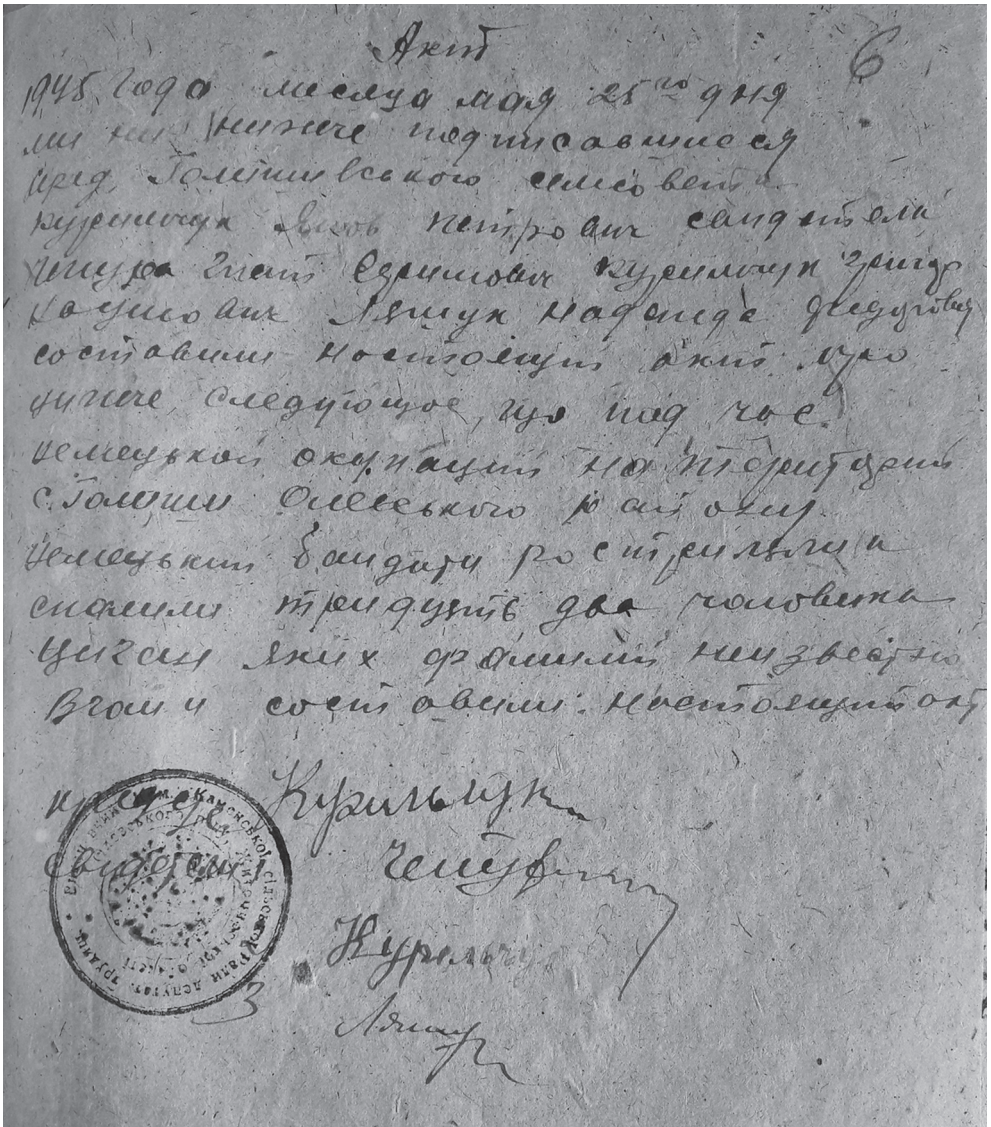 Акт
6
1945 года месяца мая 25го дня
ми ни нижче подписавшиеся
пред. Голишивського сельсовета
Курильчук Яков Петрович свидетели
Чепура Гнат Єфимович Курильчук Григор
Ляшук Надежда
составили настоящий акт про
нижче следующое, що под час
немецькой окупации на територии
с. Голиши Олевського району
немецький бандити ростриляли и
спалили тридцять два чоловика
циган яких фамилий неизвестно
В чом и составили настоящий акт
предс. Курильчук
свидетели Чепура
Курильчу
Ляшу
З